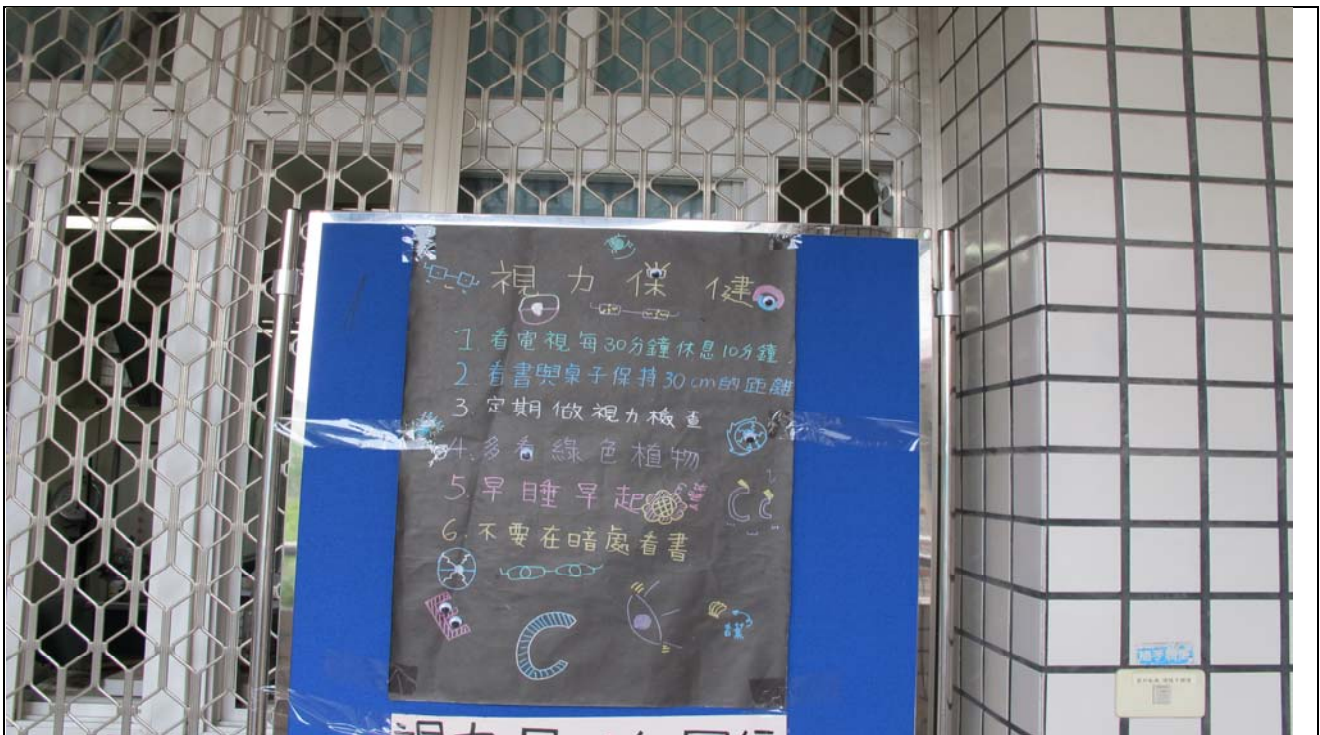 視力保健
1 看電視每30分鐘休息10分鐘
2. 看書與桌子保持30cm的距離
3. 定期做視力檢查
4. 多看綠色植物
5. 早睡早起
6. 不要在暗處看書